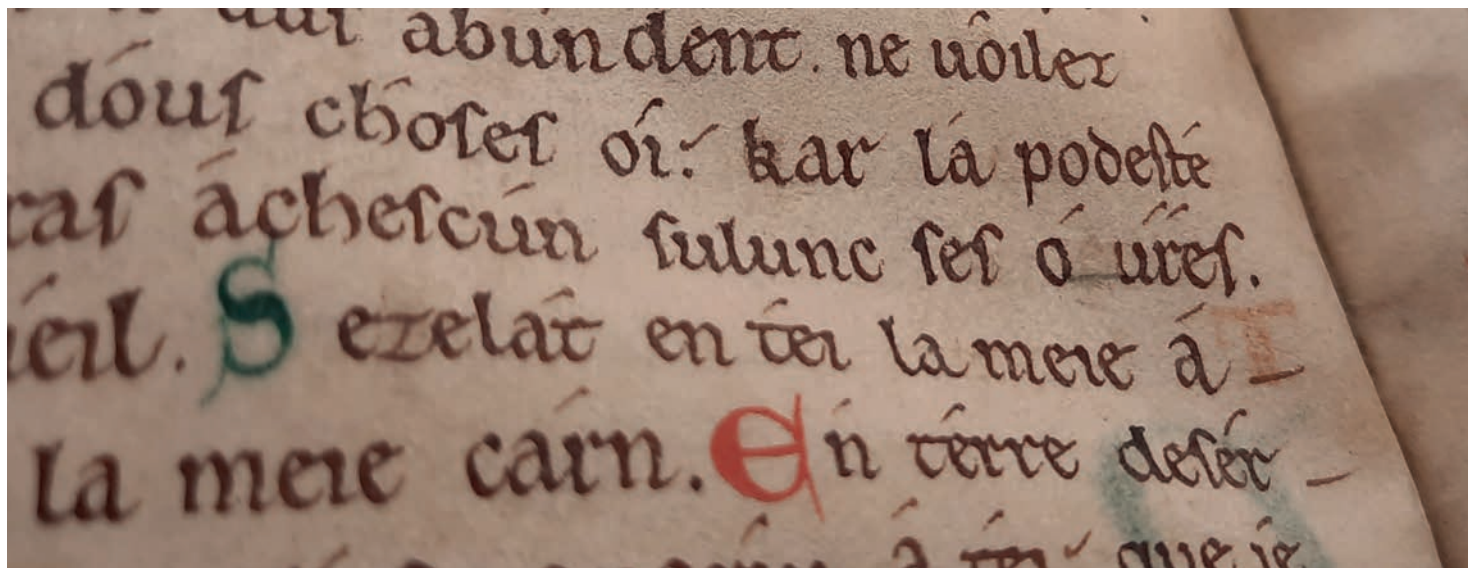 abundent. ne uóilez
dóus choses ói: kar lá podesté
ras áchescún sulunc ses ó úres.
éil. Sezelát en tei la meie á-
la meie cárn. En térre desér-
á téi que ie